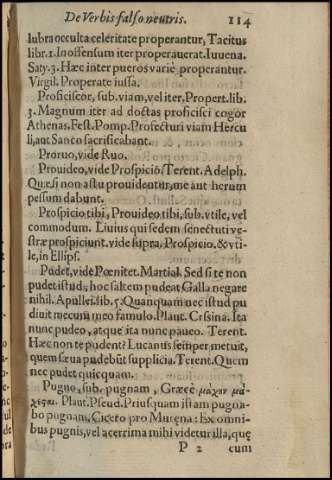 De Verbis falso neutris. 114
lubra occulta celeritate properantur, Tacitus
libr. 1. Inoffensum iter properauerat. Iuuena.
Saty. 3. Hæc inter pueros variè properantur.
Virgil. Properate iussa.
Proficiscor, sub. viam, vel iter, Propert. lib.
3. Magnum iter ad doctas proficisci cogor
Athenas. Fest. Pomp. Profecturi viam Hercu
li, aut Sanco sacrificabant.
Proruo, vide Ruo.
Prouideo, vide Prospicio. Terent. Adelph.
Quæ si non astu prouidentur, me aut herum
pessum dabunt.
Prospicio tibi, Prouideo tibi, sub. vtile, vel
commodum. Liuius qui sedem senectuti ve-
stræ prospiciunt, vide supra, Prospicio. & vti-
le, in Ellips.
Pudet, vide Pœnitet. Martial. Sed si te non
pudet istud, hoc saltem pudeat Galla negare
nihil. Apullei. lib. 5. Quanquam nec istud pu
diuit mecum meo famulo. Plaut. Crsina. Ita
nunc pudeo, atque ita nunc paueo. Terent.
Hæc non te pudent? Lucanus semper metuit,
quem sæua pudebūt supplicia. Terent. Quem
nec pudet quicquam.
Pugno, sub. pugnam, Græcè μάχην μά-
χεσθαι. Plaut. Pseud. Priusquam istam pugna-
bo pugnam, Cicero pro Murena: Ex omni-
bus pugnis, vel acerrima mihi videtur illa, quę
P 2 cum